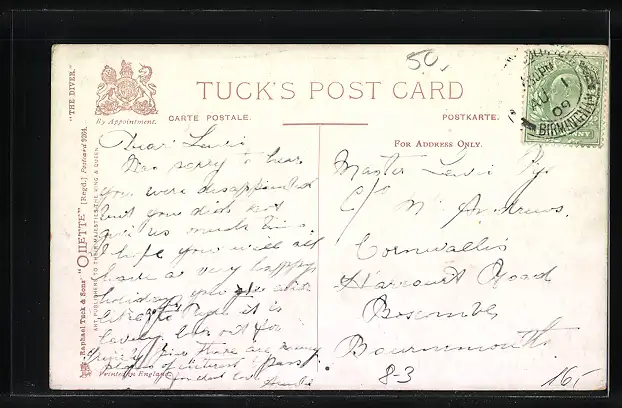 "THE DIVER."
50,
TUCK'S POST CARD
By Appointment.
CARTE POSTALE.
POSTKARTE.
FOR ADDRESS ONLY.
Raphael Tuck & Sons' "OILETTE" [Regd.] Postcard 9204.
ART PUBLISHERS TO THEIR MAJESTIES THE KING & QUEEN.
AU 1
09
BIRMINGHAM
PENNY
Dear Lewis
Was sorry to hear
you were disappointed
but you did not
give us much time.
I hope you will all
have a very happy
holiday, you
like to it is
lovely but out for
there are many
places of interest
love
Printed in England.
Master Lewis Pye
C/o Mr Andrews.
Cornwallis
Harcourt Road
Boscombe
Bournemouth
8-3
16,-